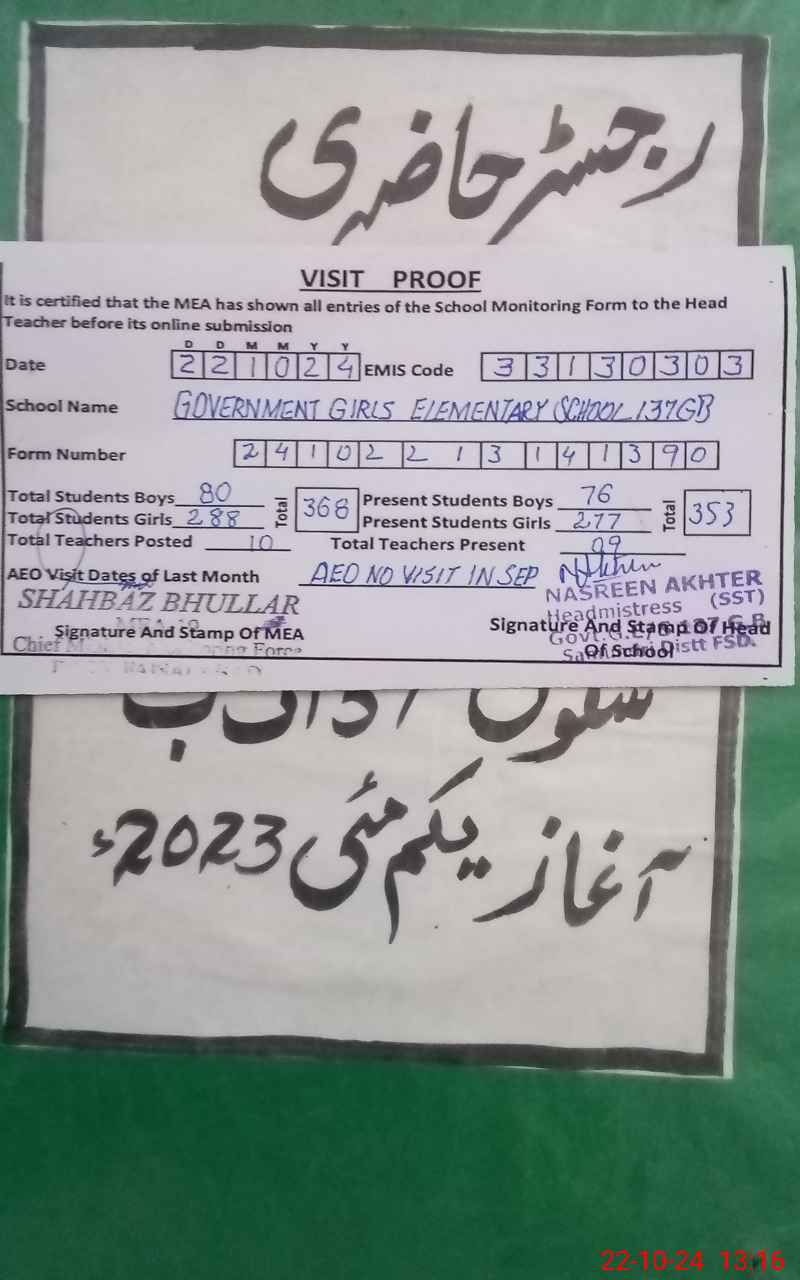 رجسٹر حاضری
VISIT PROOF
It is certified that the MEA has shown all entries of the School Monitoring Form to the Head
Teacher before its online submission
D D M M Y Y
Date 221024 EMIS Code 33130303
School Name GOVERNMENT GIRLS ELEMENTARY SCHOOL 137GB
Form Number 24102213141390
Total Students Boys 80 Total 368 Present Students Boys 76 Total 353
Total Students Girls 288 Present Students Girls 277
Total Teachers Posted 10 Total Teachers Present 09
AEO Visit Dates of Last Month AEO NO VISIT IN SEP
SHAHBAZ BHULLAR NASREEN AKHTER
Headmistress (SST)
Signature And Stamp Of MEA Signature And Stamp Of Head
Of School
Distt FSD.
آغاز یکم مئی 2023ء
22-10-24 13:16